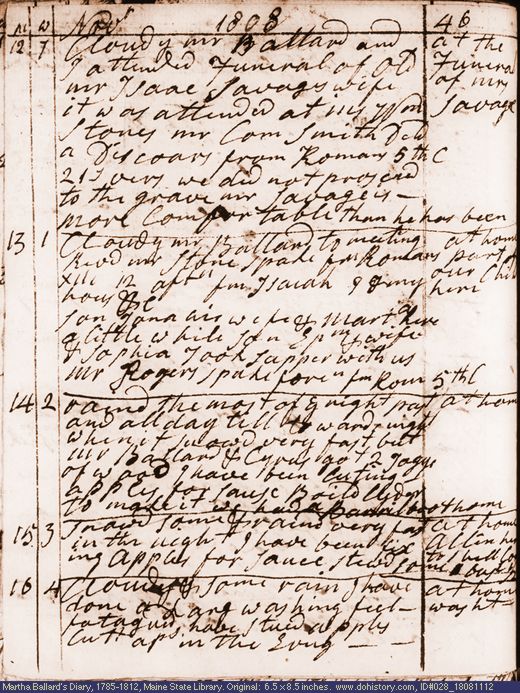 m w Novr 1808 46
12 7 Cloudy mr Ballard and at the
I attended Funeral of old Funeral
mr Isaac Savags wife of mrs
it was attended at his Savage
Stones mr Com Smith Deld
a Discoars from Romans 5th C
21st vers we did not proseed
to the grave mr Savage is
more Comfortable than he has been
13 1 Cloudy mr Ballard to meeting at home
Revd mr Stone spake fm Romans part of
XII 12 aftn fm Isaiah our Chil
here
son Jona his wife & Martha here
a little while son Epm & wife
& Sophia Took supper with us
mr Rogers spake foren fm Rom 5th C
14 2 raind the most of ye night past at home
and all day till towards night
when it snowd very fast but
mr Ballard & Cyrus got 2 loggs
of wood I have been Cuting
apples for sause Boild Cyder
to make it we had a Barrel brot home
15 3 snowd some & raind very fast at home
in the night I have been fix Allin here
ing apples for sauce stewd some
16 4 Cloudy & some rain I have at home
done a large washing feel washt
fatagud have stued apples
Cutt aps in the Evng
Martha Ballard's Diary, 1785-1812, Maine State Library. Original: 6.5 x 8.5 inches. www.dohistory.com, ID#028_18081112